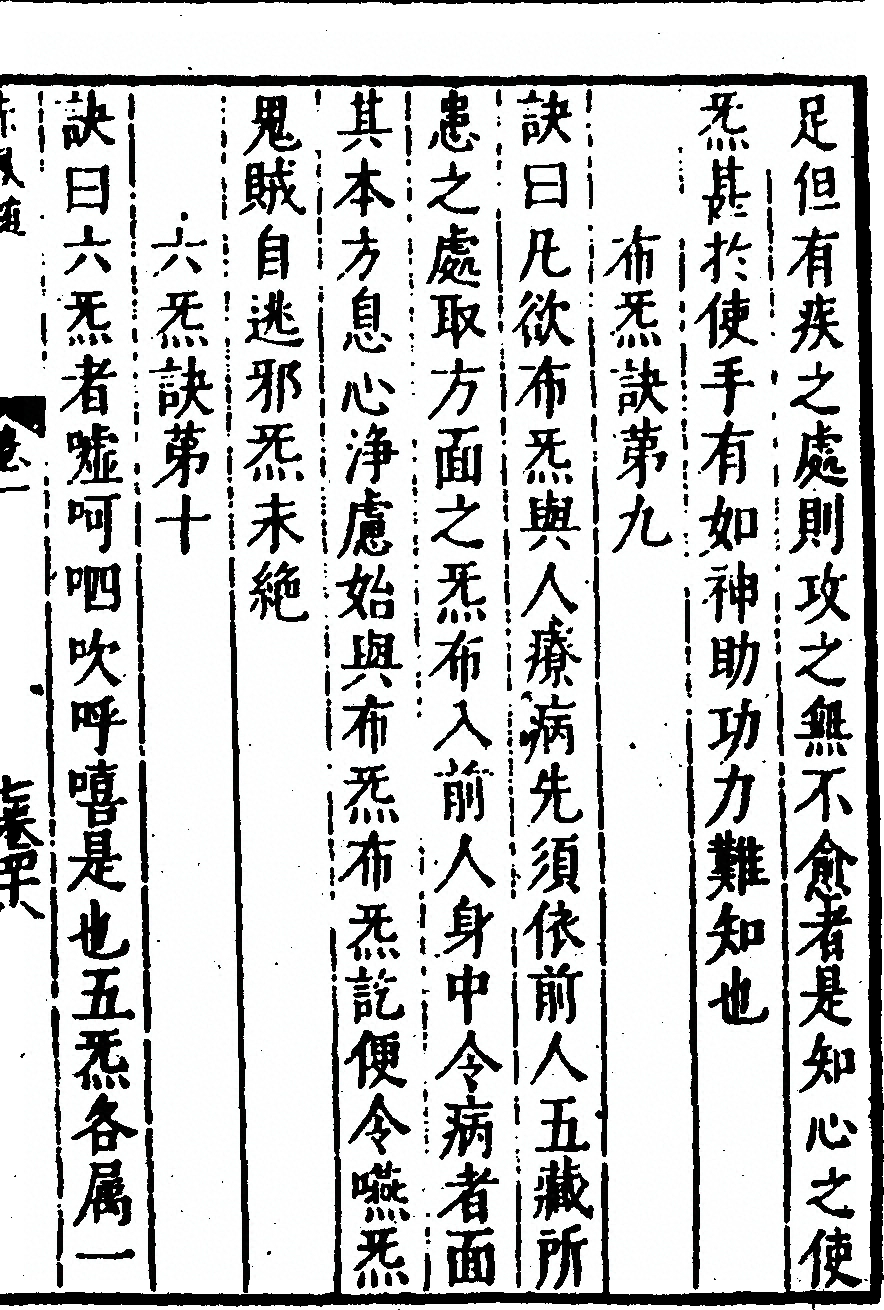 足但有疾之處則攻之無不愈者是知心之使
炁甚於使手有如神助功力難知也
布炁訣第九
訣曰凡欲布炁與人療病先須依前人五藏所
患之處取方面之炁布入前人身中令病者面
其本方息心淨慮始與布炁布炁訖便令嚥炁
鬼賊自逃邪炁未絶
六炁訣第十
訣曰六炁者噓呵呬吹呼嘻是也五炁各屬一